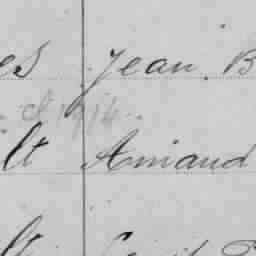 es Jean B
cl 1914
lt Amand